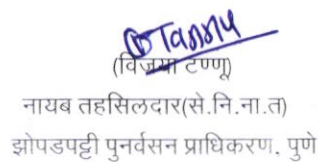 (विजया टण्णू)
नायब तहसिलदार(से.नि.ना.त)
झोपडपट्टी पुनर्वसन प्राधिकरण, पुणे